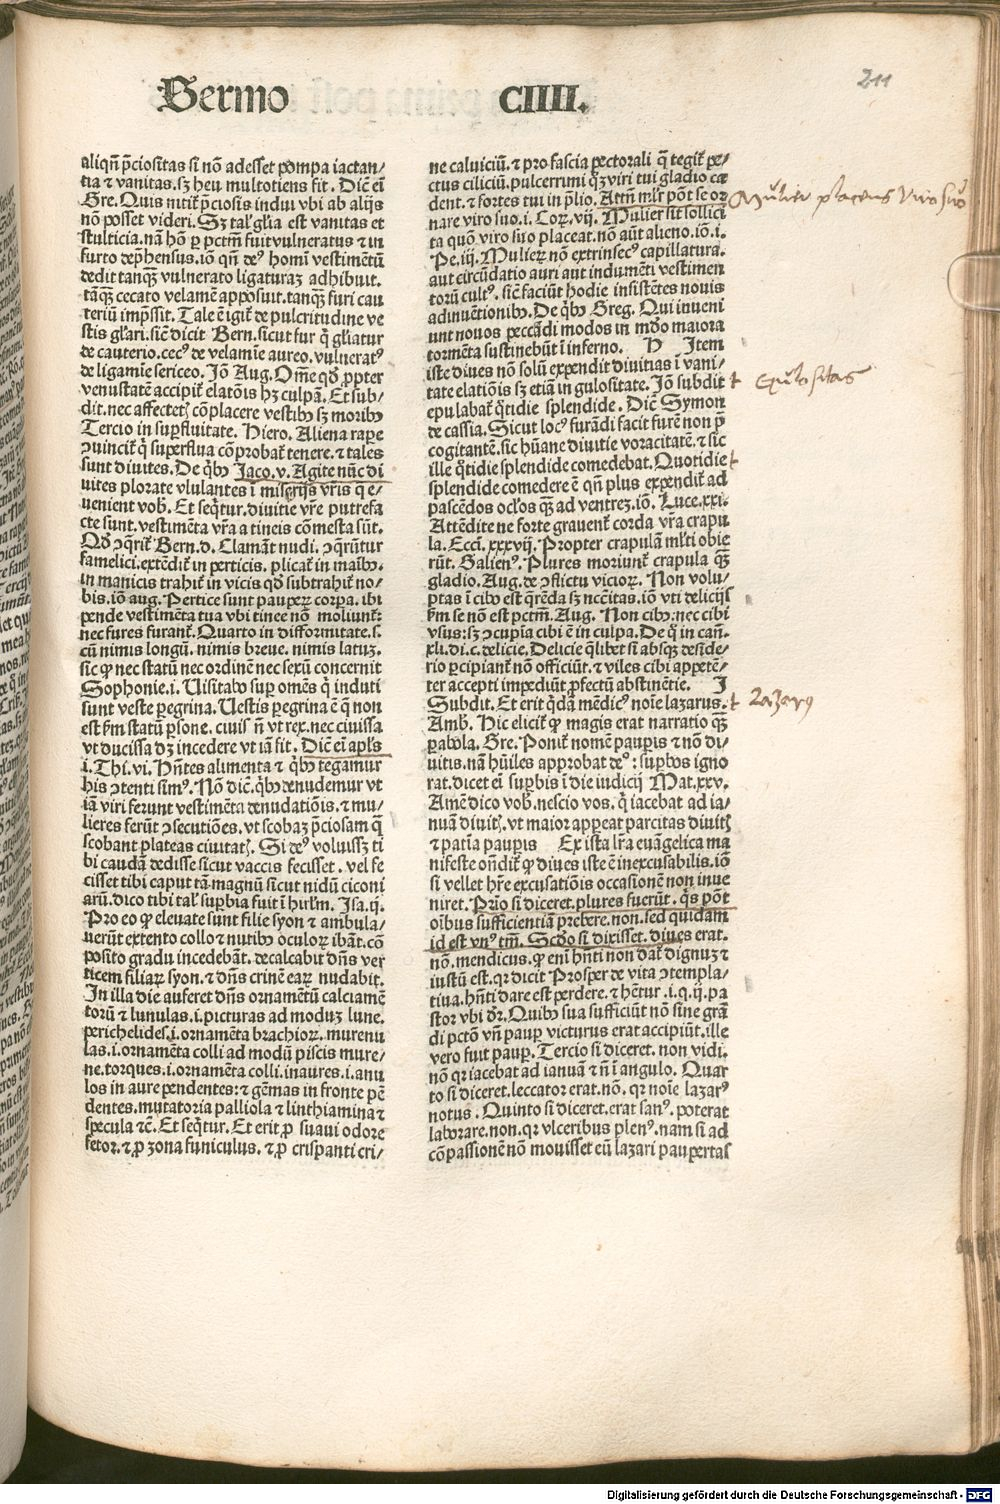 Sermo CIIII.
211
aliqñ p̄ciositas si nō adesset pompa iactan/
tia ⁊ vanitas. sꝫ heu multotiens fit. Dic̄ ei
Gre. Quis nitit̄ p̄ciosis indui vbi ab alijs
nō posset videri. Sꝫ tal' gl'ia est vanitas et
stulticia. nā hō ꝑ pctm̄ fuit vulneratus ⁊ in
furto dep̄hensus. iō qñ deꝰ homī vestimētū
dedit tanqꝫ vulnerato ligaturaꝫ adhibuit.
tāqꝫ cecato velamē apposuit. tanqꝫ furi cau
teriū imp̄ssit. Tale ē igit̄ de pulcritudine ve
stis gl'ari. sic̄ dicit Bern. sicut fur q̄ gl'iatur
de cauterio. cecꝰ de velamīe aureo. vulneratꝰ
de ligamīe sericeo. Iō Aug. Om̄e qd̄ ꝓpter
venustatē accipit̄ elatōis hꝫ culpā. Et sub/
dit. nec affectetᷣ cōplacere vestibꝰ sꝫ moribꝰ
Tercio in suꝑfluitate. Hiero. Aliena rape
ꝯuincit̄ q̄ suꝑflua cōprobat̄ tenere. ⁊ tales
sunt diuites. De qb̄ꝰ Jaco. v. Agite nūc di
uites plorate vlulantes ī miserijs vr̄is q̄ e/
uenient vob̄. Et seqt̄ur. diuitie vr̄e putrefa
cte sunt. vestimēta vr̄a a tineis cōmesta sūt.
Qd̄ ꝯq̄rit̄ Bern. d. Clamāt nudi. ꝯq̄rūtur
famelici. extēdit̄ in perticis. plicat̄ in maībꝰ.
in manicis trahit̄ in vicis qd̄ subtrahit̄ no/
bis. iō aug. Pertice sunt pauperꝝ corpa. ibi
pende vestimēta tua vbi tinee nō moliunt̄:
nec fures furant̄. Quarto in difformitate. s.
cū nimis longū. nimis breue. nimis latuꝫ.
sic ꝙ nec statū nec ordinē nec sexū concernit
Sophonie. i. Uisitabo suꝑ omēs q̄ induti
sunt veste ꝑegrina. Uestis ꝑegrina ē q̄ non
est ẜm statū ꝑsone. ciuis n̄ vt rex. nec ciuissa
vt ducissa dꝫ incedere vt iā fit. Dic̄ ei apl's
i. Thi. vi. Hñtes alimenta ⁊ qb̄ꝰ tegamur
his ꝯtenti simꝰ. Nō dic̄. qb̄ꝰ denudemur vt
iā viri ferunt vestimēta denudatiōis. ⁊ mu/
lieres ferūt ꝯsecutiōes. vt scobaꝫ p̄ciosam q̄
scobant plateas ciuitatꝭ. Si deꝰ voluissꝫ ti
bi caudā dedisse sicut vaccis fecisset. vel fe
cisset tibi caput tā magnū sicut nidū ciconi
arū. dico tibi tal' suꝑbia fuit ī hirl'm. Isa. ij.
Pro eo ꝙ eleuate sunt filie syon ⁊ ambula/
uerūt extento collo ⁊ nutibꝰ oculoꝝ ibāt. cō
posito gradu incedebāt. decalcabit dn̄s ver
ticem filiaꝝ syon. ⁊ dn̄s crinē eaꝝ nudabit.
In illa die auferet dn̄s ornamētū calciamē
torū ⁊ lunulas. i. picturas ad moduꝫ lune.
perichelides. i. ornamēta brachioꝝ. murenu
las. i. ornamēta colli ad modū piscis mure/
ne. torques. i. ornamēta colli. inaures. i. anu
los in aure pendentes: ⁊ gēmas in fronte pē
dentes. mutatoria palliola ⁊ linthiamina ⁊
specula ⁊c̄. Et seqt̄ur. Et erit ꝓ suaui odore
fetor. ⁊ ꝓ zona funiculus. ⁊ ꝓ crispanti cri/
ne caluiciū. ⁊ pro fascia pectorali q̄ tegit̄ pe/
ctus ciliciū. pulcerrimi qꝫ viri tui gladio ca
dent. ⁊ fortes tui in p̄lio. Attn̄ ml'r pōt se or
nare viro suo. i. Coꝝ. vij. Mulier sit sollici
ta quō viro suo placeat. nō aūt alieno. iō. i.
Pe. iij. Mulieꝝ nō extrinsecꝰ capillatura.
aut circūdatio auri aut indumēti vestimen
torū cultꝰ. sic̄ faciūt hodie insistētes nouis
adinuētionibꝰ. De qb̄ꝰ Greg. Qui inueni
unt nouos peccādi modos in mūdo maiora
tormēta sustinebūt ī inferno. H Item
iste diues nō solū expendit diuitias ī vani/
tate elatiōis sꝫ etiā in gulositate. Iō subdit
epulabat̄ q̄tidie splendide. Dic̄ Symon
de cassia. Sicut locꝰ furādi facit furē non p̄
cogitantē. sic hūane diuitie voracitatē. ⁊ sic
ille q̄tidie splendide comedebat. Quotidie
splendide comedere ē qn̄ plus expendit̄ ad
pascēdos ocl'os qꝫ ad ventreꝫ. iō. Luce. xxi.
Attēdite ne forte grauent̄ corda vr̄a crapu
la. Eccī. xxxvij. Propter crapulā ml'ti obie
rūt. Galienꝰ. Plures moriunt̄ crapula qꝫ
gladio. Aug. de ꝯflictu vicioꝝ. Non volu/
ptas ī cibo est q̄rēda sꝫ nccītas. iō vti delicijs
ẜm se non est pctm̄. Aug. Non cibꝰ: nec cibi
vsus: sꝫ ꝯcupīa cibi ē in culpa. De q̄ in can̄.
xli. di. c. delicie. Delicie q̄libet si absqꝫ deside/
rio ꝑcipiant̄ nō officiūt. ⁊ viles cibi appetē/
ter accepti impediūt ꝓfectū abstinētie. I
Subdit. Et erit q̄dā mēdicꝰ noīe lazarus.
Amb. Hic elicit̄ ꝙ magis erat narratio qꝫ
ꝑabola. Gre. Ponit̄ nomē pauꝑis ⁊ nō di/
uitis. nā hūiles approbat deꝰ: suꝑbos igno
rat. dicet ei suꝑbis ī die iudicij Mat. xxv.
Amē dico vob̄. nescio vos. q̄ iacebat ad ia/
nuā diuitꝭ. vt maior appeat parcitas diuitꝭ
⁊ patīa pauꝑis Ex ista lr̄a euāgelica ma
nifeste on̄dit̄ ꝙ diues iste ē inexcusabilis. iō
si vellet hr̄e excusatiōis occasionē non inue
niret. Prīo si diceret. plures fuerūt. q̄s pōt
oībus sufficientiā prebere. non. sed quidam
id est vnꝰ tm̄. Scd̄o si dixisset. diues erat.
nō. mendicus. ꝙ enī hn̄ti non dat̄ dignuꝫ ⁊
iustū est. qꝛ dicit Prosper de vita ꝯtempla/
tiua. hn̄ti dare est perdere. ⁊ hētur. i. q. ij. pa
stor vbi dr̄. Quibꝰ sua sufficiūt nō sine gran
di pctō vn̄ pauꝑ victurus erat accipiūt. ille
vero fuit pauꝑ. Tercio si diceret. non vidi.
nō qꝛ iacebat ad ianuā ⁊ n̄ ī angulo. Quar
to si diceret. leccator erat. nō. qꝛ noīe lazarꝰ
notus. Quinto si diceret. erat sanꝰ. poterat
laborare. non. qꝛ vlceribus plenꝰ. nam si ad
cōpassionē nō mouisset eū lazari paupertas
Mulier placens viro suo
Epulositas
Lazarus
Digitalisierung gefördert durch die Deutsche Forschungsgemeinschaft - DFG